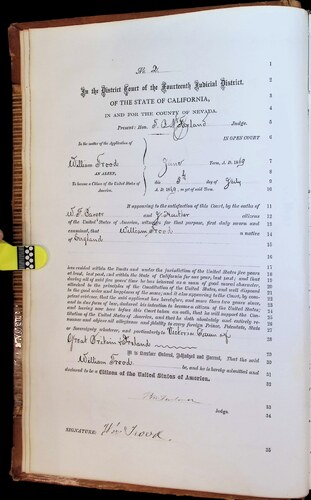 No. 2.
In the District Court of the Fourteenth Judicial District.
OF THE STATE OF CALIFORNIA,
IN AND FOR THE COUNTY OF NEVADA.
Present: Hon. Judge.
IN OPEN COURT
In the matter of the Application of
William Trood
AN ALIEN,
To become a Citizen of the United States of
America.
June Term, A. D. 1869
this 8th day of July
A. D. 1869, as yet of said Term
It appearing to the satisfaction of this Court, by the oaths of
and citizens
of the United States of America, witnesses for that purpose, first duly sworn and
examined, that William Trood a native
of England
has resided within the limits and under the jurisdiction of the United States five years
at least, last past, and within the State of California for one year, last past; and that
during all of said five years' time he has behaved as a man of good moral character,
attached to the principles of the Constitution of the United States, and well disposed
to the good order and happiness of the same; and it also appearing to the Court, by com-
petent evidence, that the said applicant has heretofore, and more than two years since,
and in due form of law, declared his intention to become a citizen of the United States;
and having now here before this Court taken an oath, that he will support the Con-
stitution of the United States of America, and that he doth absolutely and entirely re-
nounce and abjure all allegiance and fidelity to every foreign Prince, Potentate, State
or Sovereignty whatever, and particularly to Victoria Queen of
Great Britain & Ireland
It is therefore Ordered, Adjudged and Decreed, That the said
William Trood be, and he is hereby admitted and
declared to be a Citizen of the United States of America.
Judge.
SIGNATURE: Wm Trood.
1
2
3
4
5
6
7
8
9
10
11
12
13
14
15
16
17
18
19
20
21
22
23
24
25
26
27
28
29
30
31
32
33
34
35